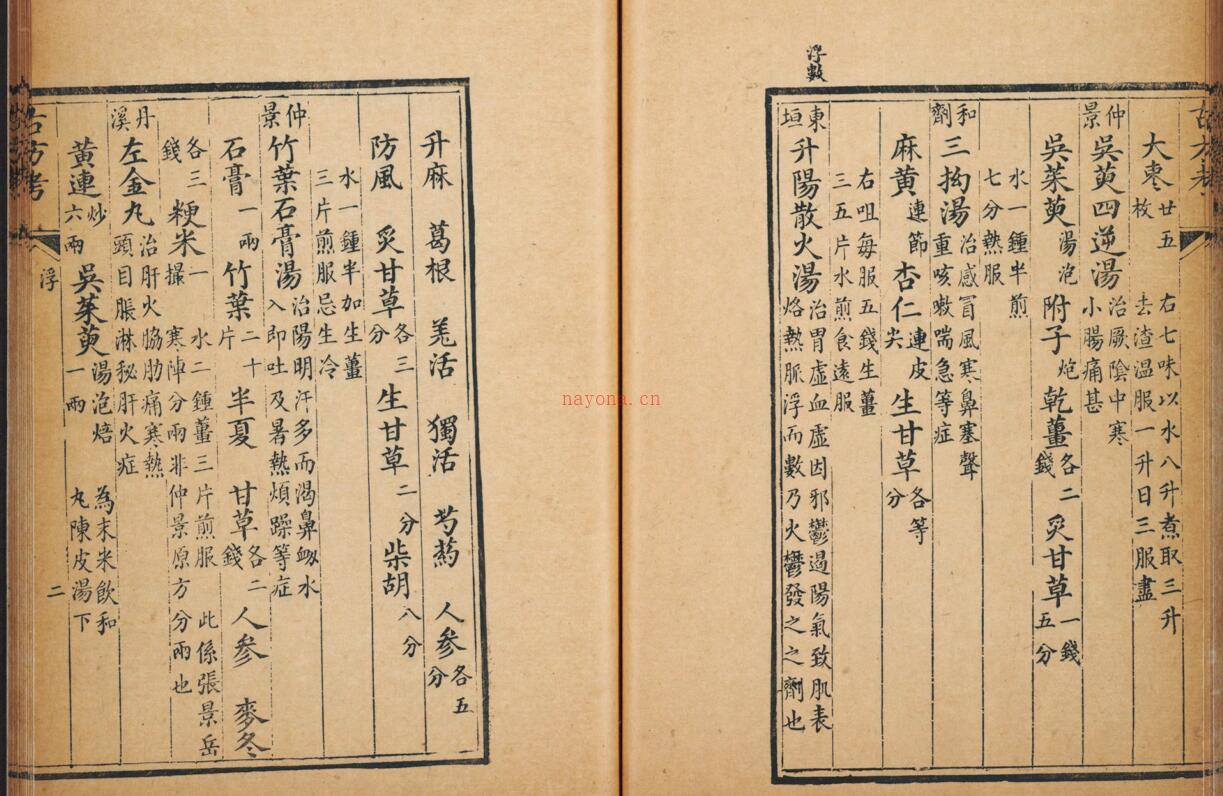 古方考
大棗 廿五枚 右七味以水八升煮取三升去渣溫服一升日三服盡
仲景 吳萸四逆湯 治厥陰中寒小腸痛甚
吳茱萸 湯泡 附子 炮 乾薑 各二錢 炙甘草 一錢五分
水一鍾半煎七分熱服
和劑 三拗湯 治感冒風寒鼻塞聲重咳嗽喘急等症
麻黃 連節 杏仁 連皮尖 生甘草 各等分
右咀每服五錢生薑三五片水煎食遠服
浮數
東垣 升陽散火湯 治胃虛血虛因邪鬱遏陽氣致肌表烙熱脈浮而數乃火鬱發之之劑也
升麻 葛根 羌活 獨活 芍藥 人參 各五分
防風 炙甘草 各三分 生甘草 二分 柴胡 八分
水一鍾半加生薑三片煎服忌生冷
仲景 竹葉石膏湯 治陽明汗多而渴鼻衄水入即吐及暑熱煩躁等症
石膏 一兩 竹葉 二十片 半夏 甘草 各二錢 人參 麥冬
各三錢 粳米 一撮 水二鍾薑三片煎服 此係張景岳寒陣分兩非仲景原方分兩也
丹溪 左金丸 治肝火脇肋痛寒熱頭目脹淋秘肝火症
黃連 炒六兩 吳茱萸 湯泡焙一兩 為末米飲和丸陳皮湯下
古方考 浮 二
nayona.cn